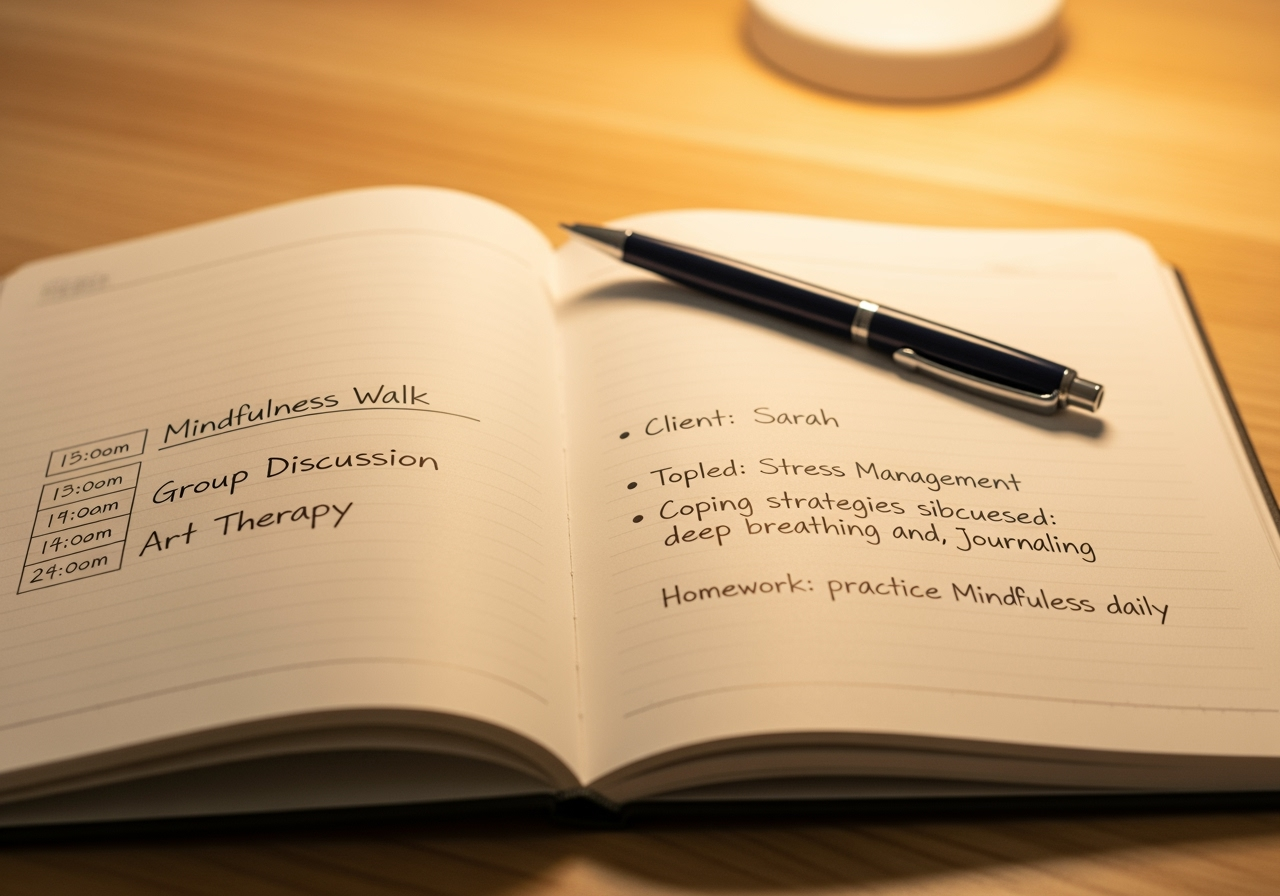 Mindfulness Walk
15:00m
13:00m
Group Discussion
14:00m
Art Therapy
24:00m
• Client: Sarah
• Topled: Stress Management
• Coping strategies sibcuesed:
deep breathing and, Journaling
Homework: practice Mindfuless daily